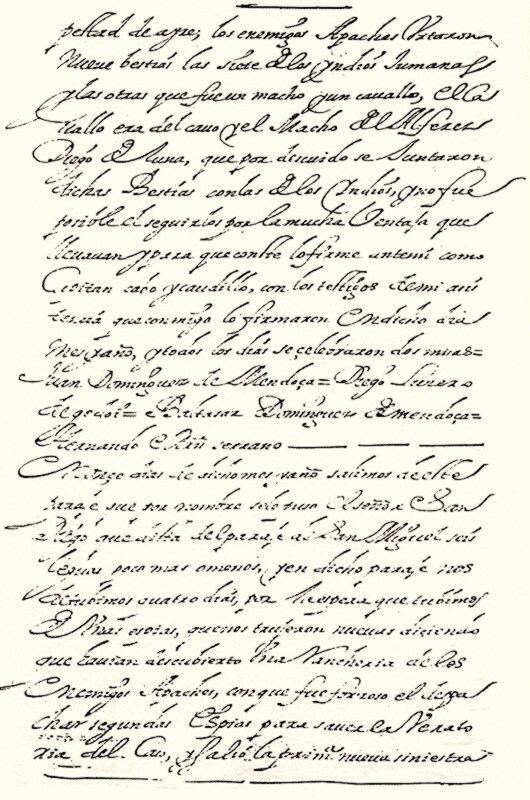 pestad de ayre; los enemigos Apaches urtaron
Nueve bestias las siete de los yndios Jumanas
y las otras que fue un macho y un cauallo, el Ca
uallo era del cauo y el Macho del Alferes
Diego de Luna, que por descuido se Juntaron
dichas Bestias con las de los Yndios, y no fue
posible el seguirlos por la mucha Ventaja que
lleuauan y para que conste lo firme ante mi como
Capitan cabo y caudillo, con los testigos de mi asis
tencia que conmigo lo firmaron En dicho dia
Mes y año, y todos los dias se celebraron dos misas=
Juan Dominguez de Mendoça= Diego Lusero
de godoi= Baltasar Dominguez de mendoça=
Hernando Mrñ serrano
Nueçe dias de dicho mes y año salimos de este
paraje que por nombre se le puso El señor San
Diego que dista del paraje de San Miguel seis
leguas poco mas o menos, y en dicho paraje nos
detubimos quatro dias, por la espera que tubimos
de Unas espias, que nos trujeron nuevas diciendo
que hauian descubierto Una Rancheria de los
Enemigos Apaches, con que fue forsoso el despa
char segundas Espias para sauer la Verato
ria del Caso, y salio la prima nueva siniestra